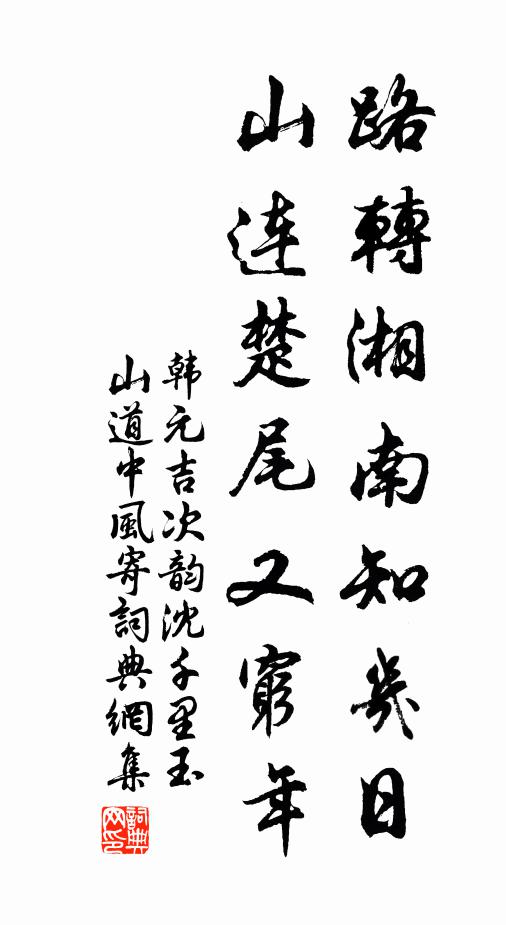 路轉湘南知幾日
山連楚尾又窮年
韩元吉次韵沈千里玉
山道中風寄詞典網集
詞典网印